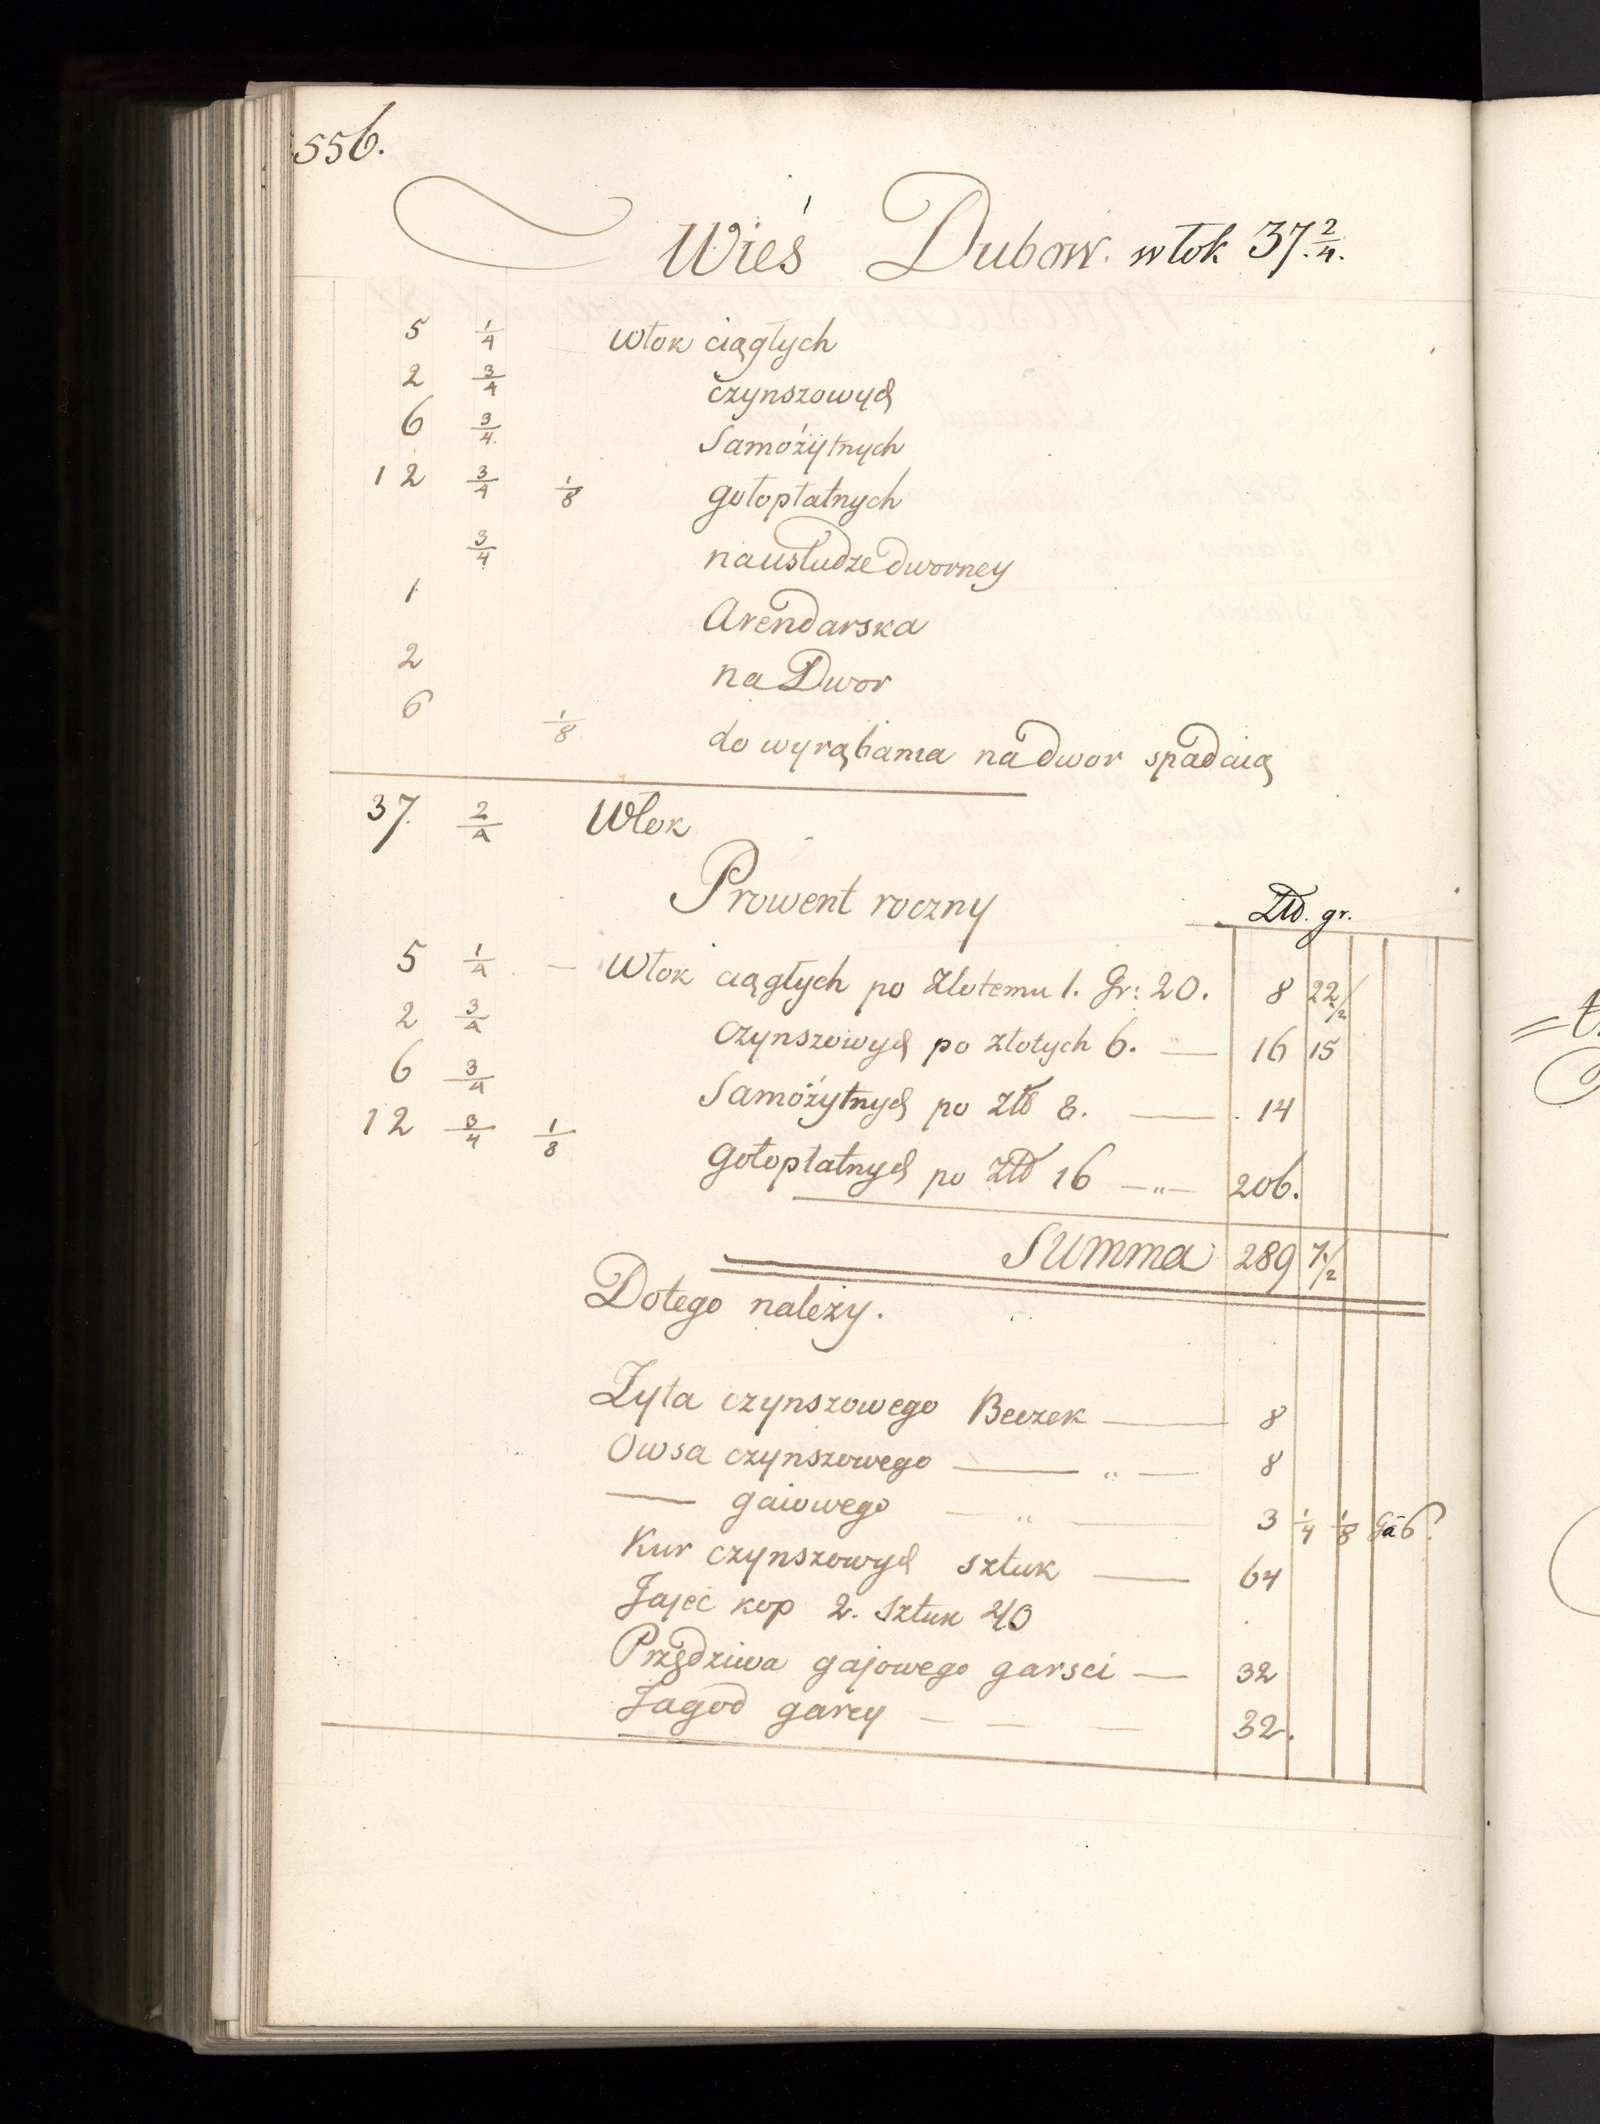 556.
Wieś Dubow. włok 37. 2/4.
5 1/4 Włok ciągłych
2 3/4 czynszowych
6 3/4 Samożytnych
12 3/4 1/8 gołopłatnych
3/4 na usłudze dworney
1 Arendarska
2 na Dwor
6 1/8 do wyrąbania na dwor spadaią
37. 2/4 Włok
Prowent roczny Złł. gr.
5 1/4 — Włok ciągłych po Złotemu 1. Gr: 20. 8 22 1/2
2 3/4 czynszowych po złotych 6. — 16 15
6 3/4 Samożytnych po Złł 8. — 14
12 3/4 1/8 gołopłatnych po Złł 16 — " — 206.
Summa 289 7 1/2
Do tego należy.
Zyta czynszowego Beczek — 8
Owsa czynszowego — " — 8
— gaiowego — " — 3 1/4 1/8 Ga 6.
Kur czynszowych sztuk — 64
Jajec kop 2. sztuk 40
Przędziwa gajowego garsci — 32
Jagod garcy — — — 32.